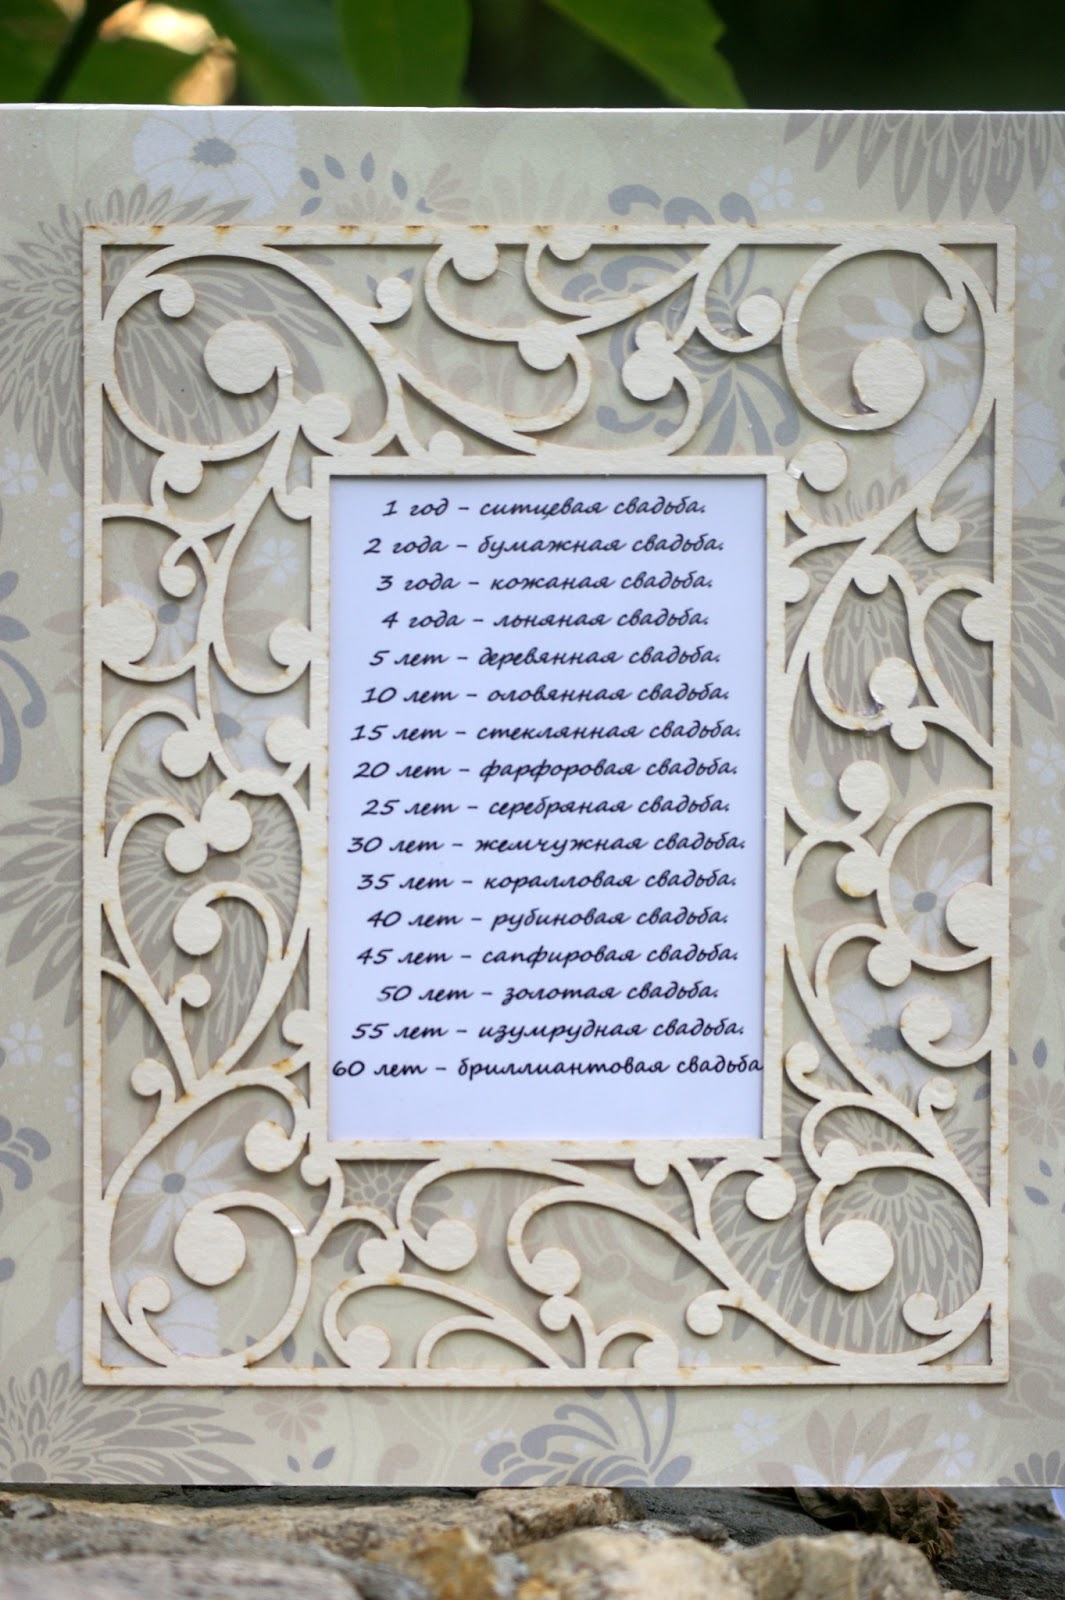 1 год - ситцевая свадьба.
2 года - бумажная свадьба.
3 года - кожаная свадьба.
4 года - льняная свадьба.
5 лет - деревянная свадьба.
10 лет - оловянная свадьба.
15 лет - стеклянная свадьба.
20 лет - фарфоровая свадьба.
25 лет - серебряная свадьба.
30 лет - жемчужная свадьба.
35 лет - коралловая свадьба.
40 лет - рубиновая свадьба.
45 лет - сапфировая свадьба.
50 лет - золотая свадьба.
55 лет - изумрудная свадьба.
60 лет - бриллиантовая свадьба